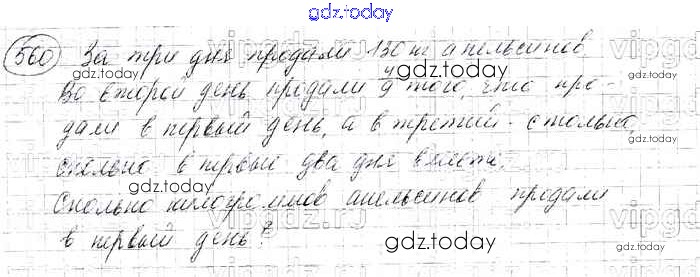 gdz.today
560 За три дня продали 130 кг апельсинов
gdz.today
Во второй день продали 4/9 того, что про-
дали в первый день, а в третий - столько,
сколько в первый два дня вместе.
gdz.today
Сколько килограммов апельсинов продали
в первый день?
gdz.today
gdz.today